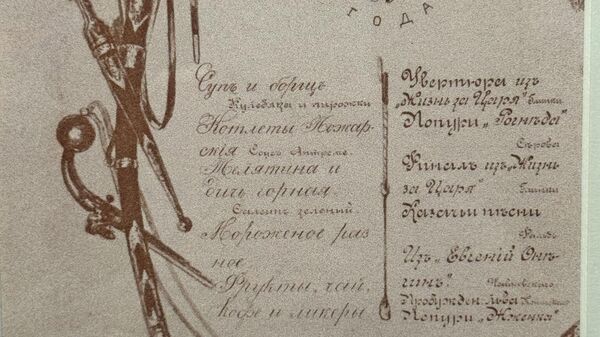 ГОДА
Супъ и борщъ
Кулебяка и пирожки
Котлеты Пожар-
скія Соусъ
Телятина и
дичь горная.
Салатъ зеленый.
Мороженое раз
ное
Фрукты, чай,
кофе и ликеры
Увертюра изъ
„Жизнь за Царя" Глинки
Попури „Рогнѣда"
Сѣрова
Финалъ изъ „Жизнь
за Царя" Глинки
Казачьи пѣсни
Изъ „Евгеній Онѣ-
гинъ". Чайковскаго
Пробужден. льва
Попури „Жженка"